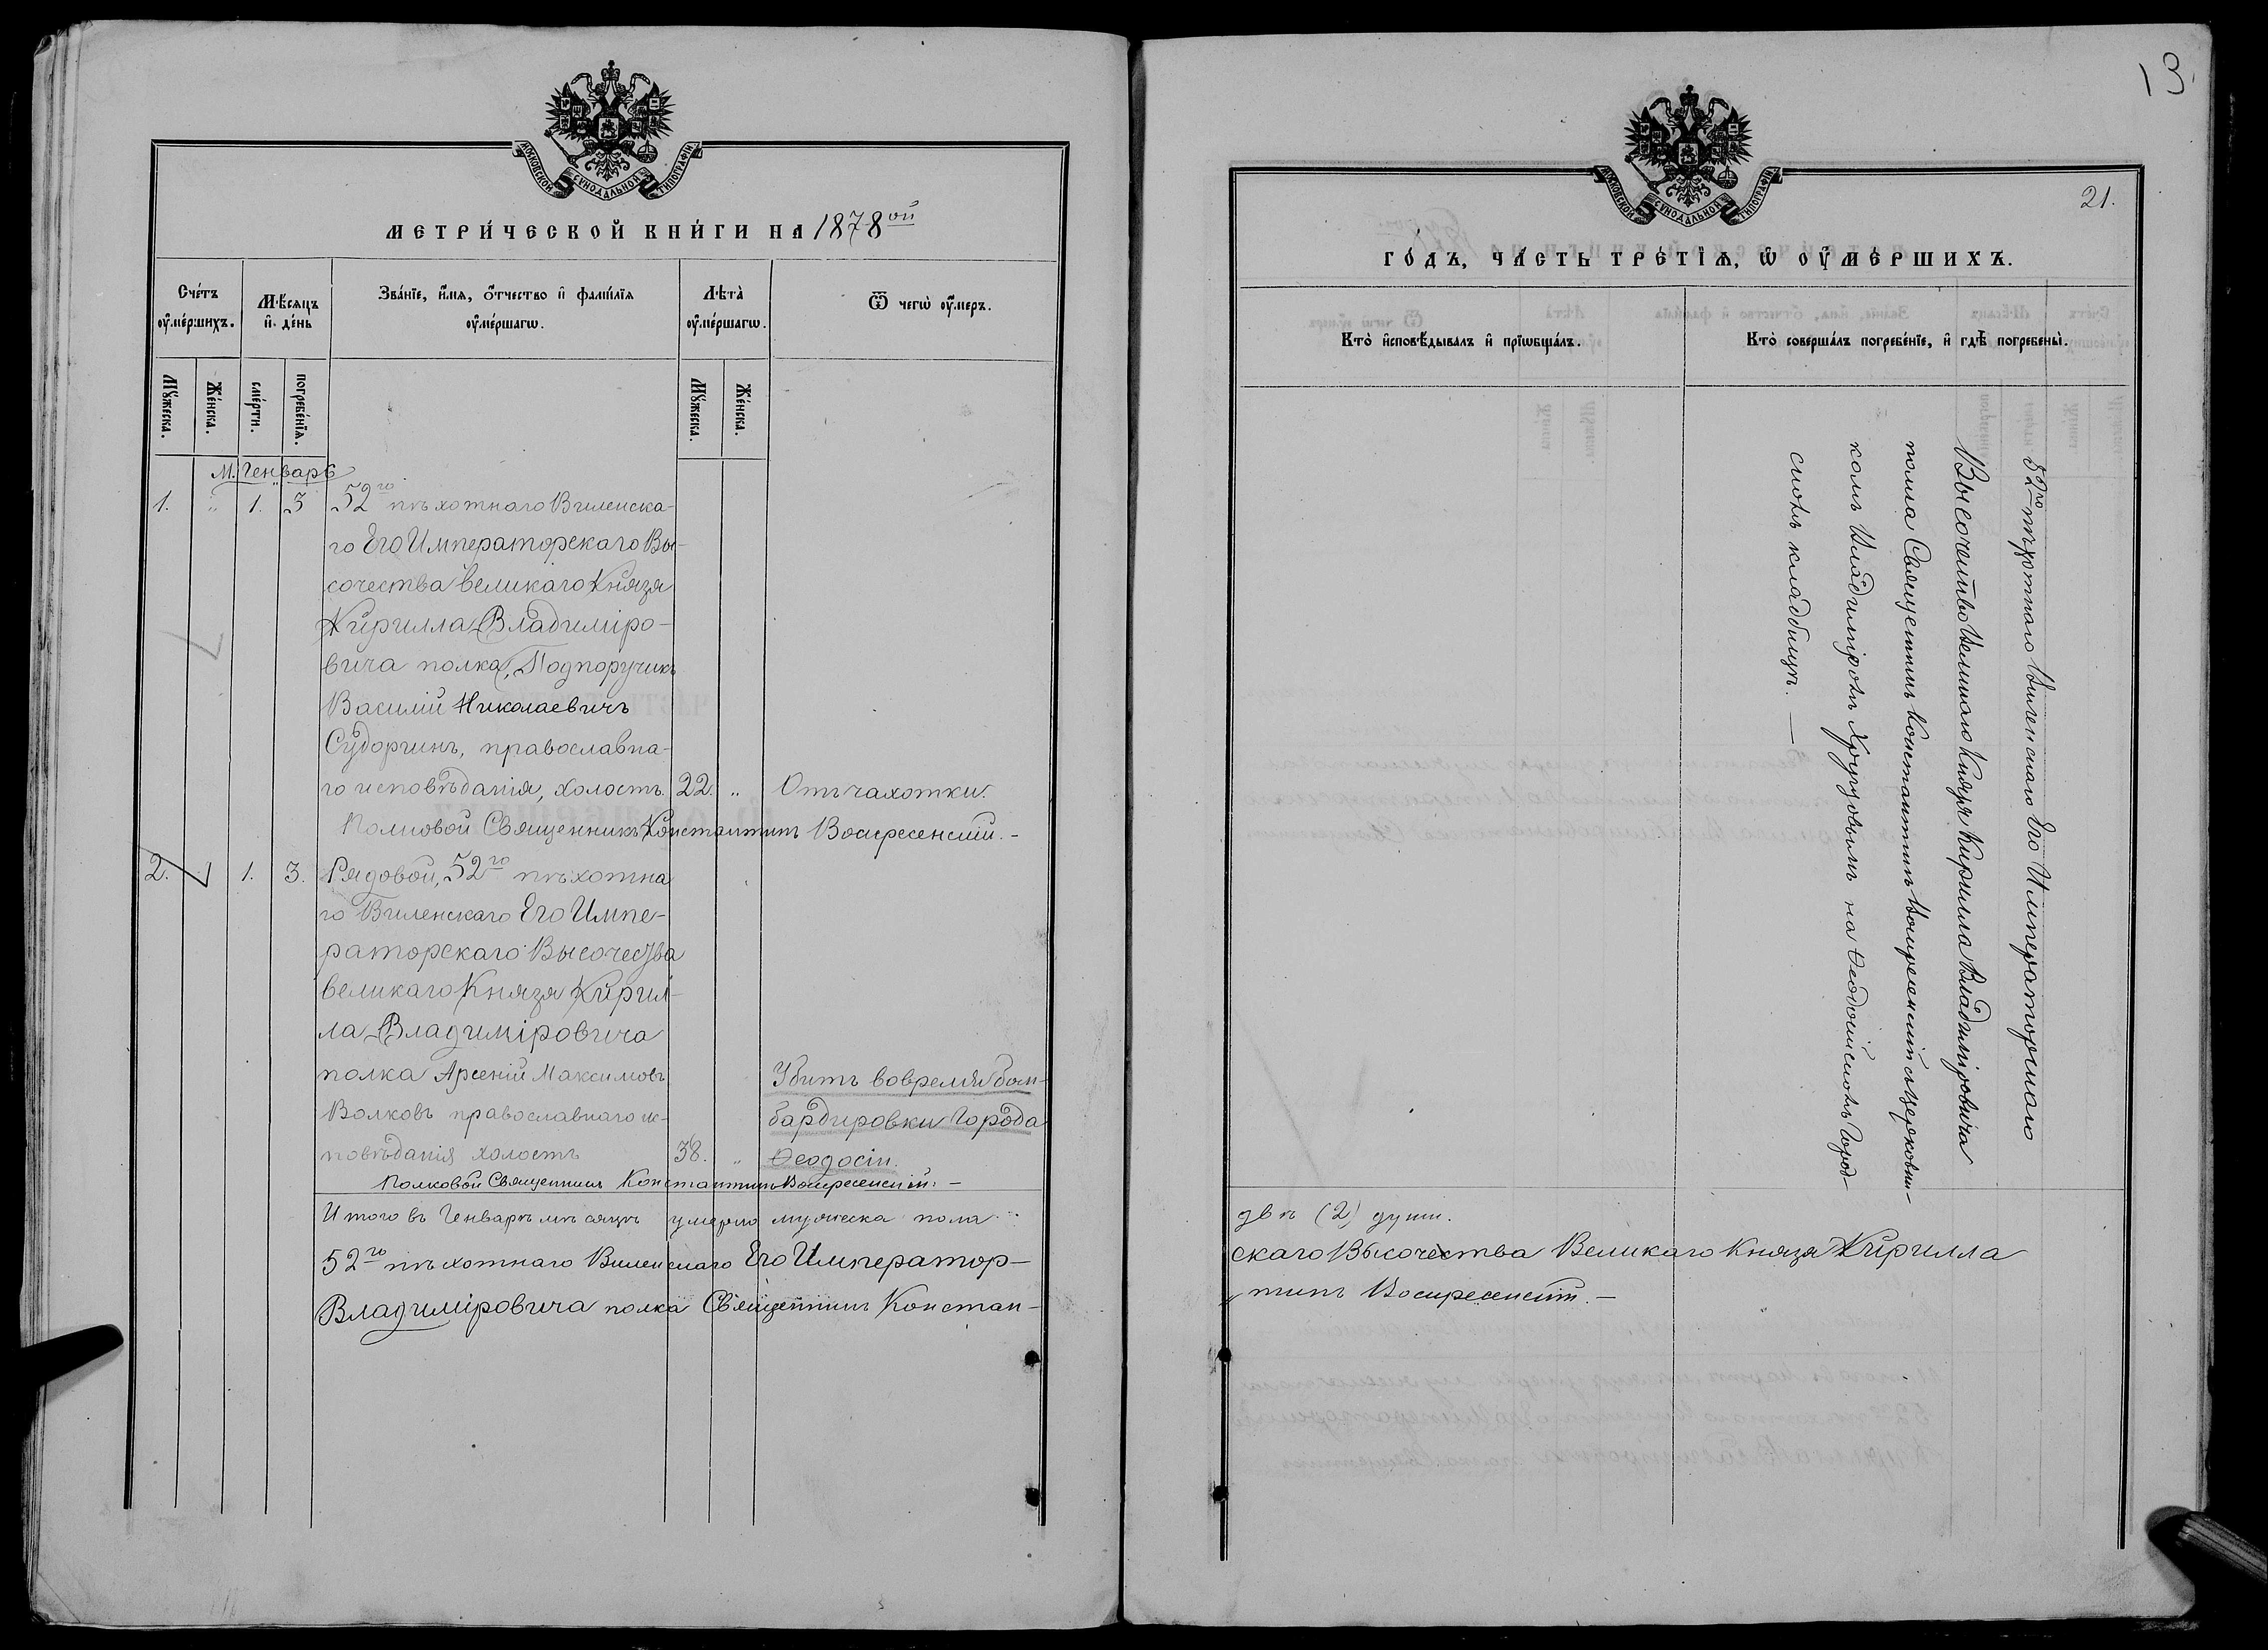 МОСКОВСКОЙ СѴНОДАЛЬНОЙ ТИПОГРАФІИ
МЕТРИ́ЧЕСКОЙ КНИ́ГИ НА 1878ой
Сче́тъ оу҆ме́ршихъ.
Мѣ́сяцъ и҆ де́нь
Зва́нїе, и҆́мя, ѻ҆́тчество и҆ фами́лїя оу҆ме́ршагѡ.
Лѣ́та оу҆ме́ршагѡ.
Ѿ чегѡ̀ оу҆́меръ.
Мꙋ́жеска.
Же́нска.
сме́рти.
погребе́нїѧ.
Мꙋ́жеска.
Же́нска.
М. Генварь
1. " 1. 3 52го пѣхотнаго Виленска-
го Его Императорскаго Вы-
сочества великаго Князя
Кирилла Владиміро-
вича полка, Подпоручикъ
Василій Николаевичъ
Судоргинъ, православна-
го исповѣданія, холостъ. 22. " Отъ чахотки.
Полковой Священникъ Константинъ Воскресенскій. -
2. 1. 3. Рядовой, 52го пѣхотна
го Виленскаго Его Импе-
раторскаго Высочества
великаго Князя Кирил-
ла Владиміровича
полка Арсеній Максимовъ Убитъ вовремя бом-
Волковъ православнаго ис- бардировки города
повѣданія холостъ 38. " Ѳеодосіи.
Полковой Священникъ Константинъ Воскресенскій. -
Итого въ Генварѣ мѣсяцѣ умерло мужеска пола
52го пѣхотнаго Виленскаго Его Император-
Владиміровича полка Священникъ Констан-
13
МОСКОВСКОЙ СѴНОДАЛЬНОЙ ТИПОГРАФІИ
21.
ГО́ДЪ, ЧА́СТЬ ТРЕ́ТЇѦ, Ѡ҆ ОУ҆МЕ́РШИХЪ.
Кто̀ и҆сповѣ́дывалъ и҆ прїѡбща́лъ.
Кто̀ соверша́лъ погребе́нїе, и҆ гдѣ̀ погребены̀.
52го пѣхотнаго Виленскаго Его Императорскаго
Высочество Великаго Князя Кирилла Владиміровича
полка Священникъ Константинъ Воскресенскій съ церковни-
комъ Владиміромъ Хругузовымъ на Ѳеодосійскомъ Город-
скомъ кладбищѣ. —
двѣ (2) души.
скаго Высочества Великаго Князя Кирилла
тинъ Воскресенскій. -